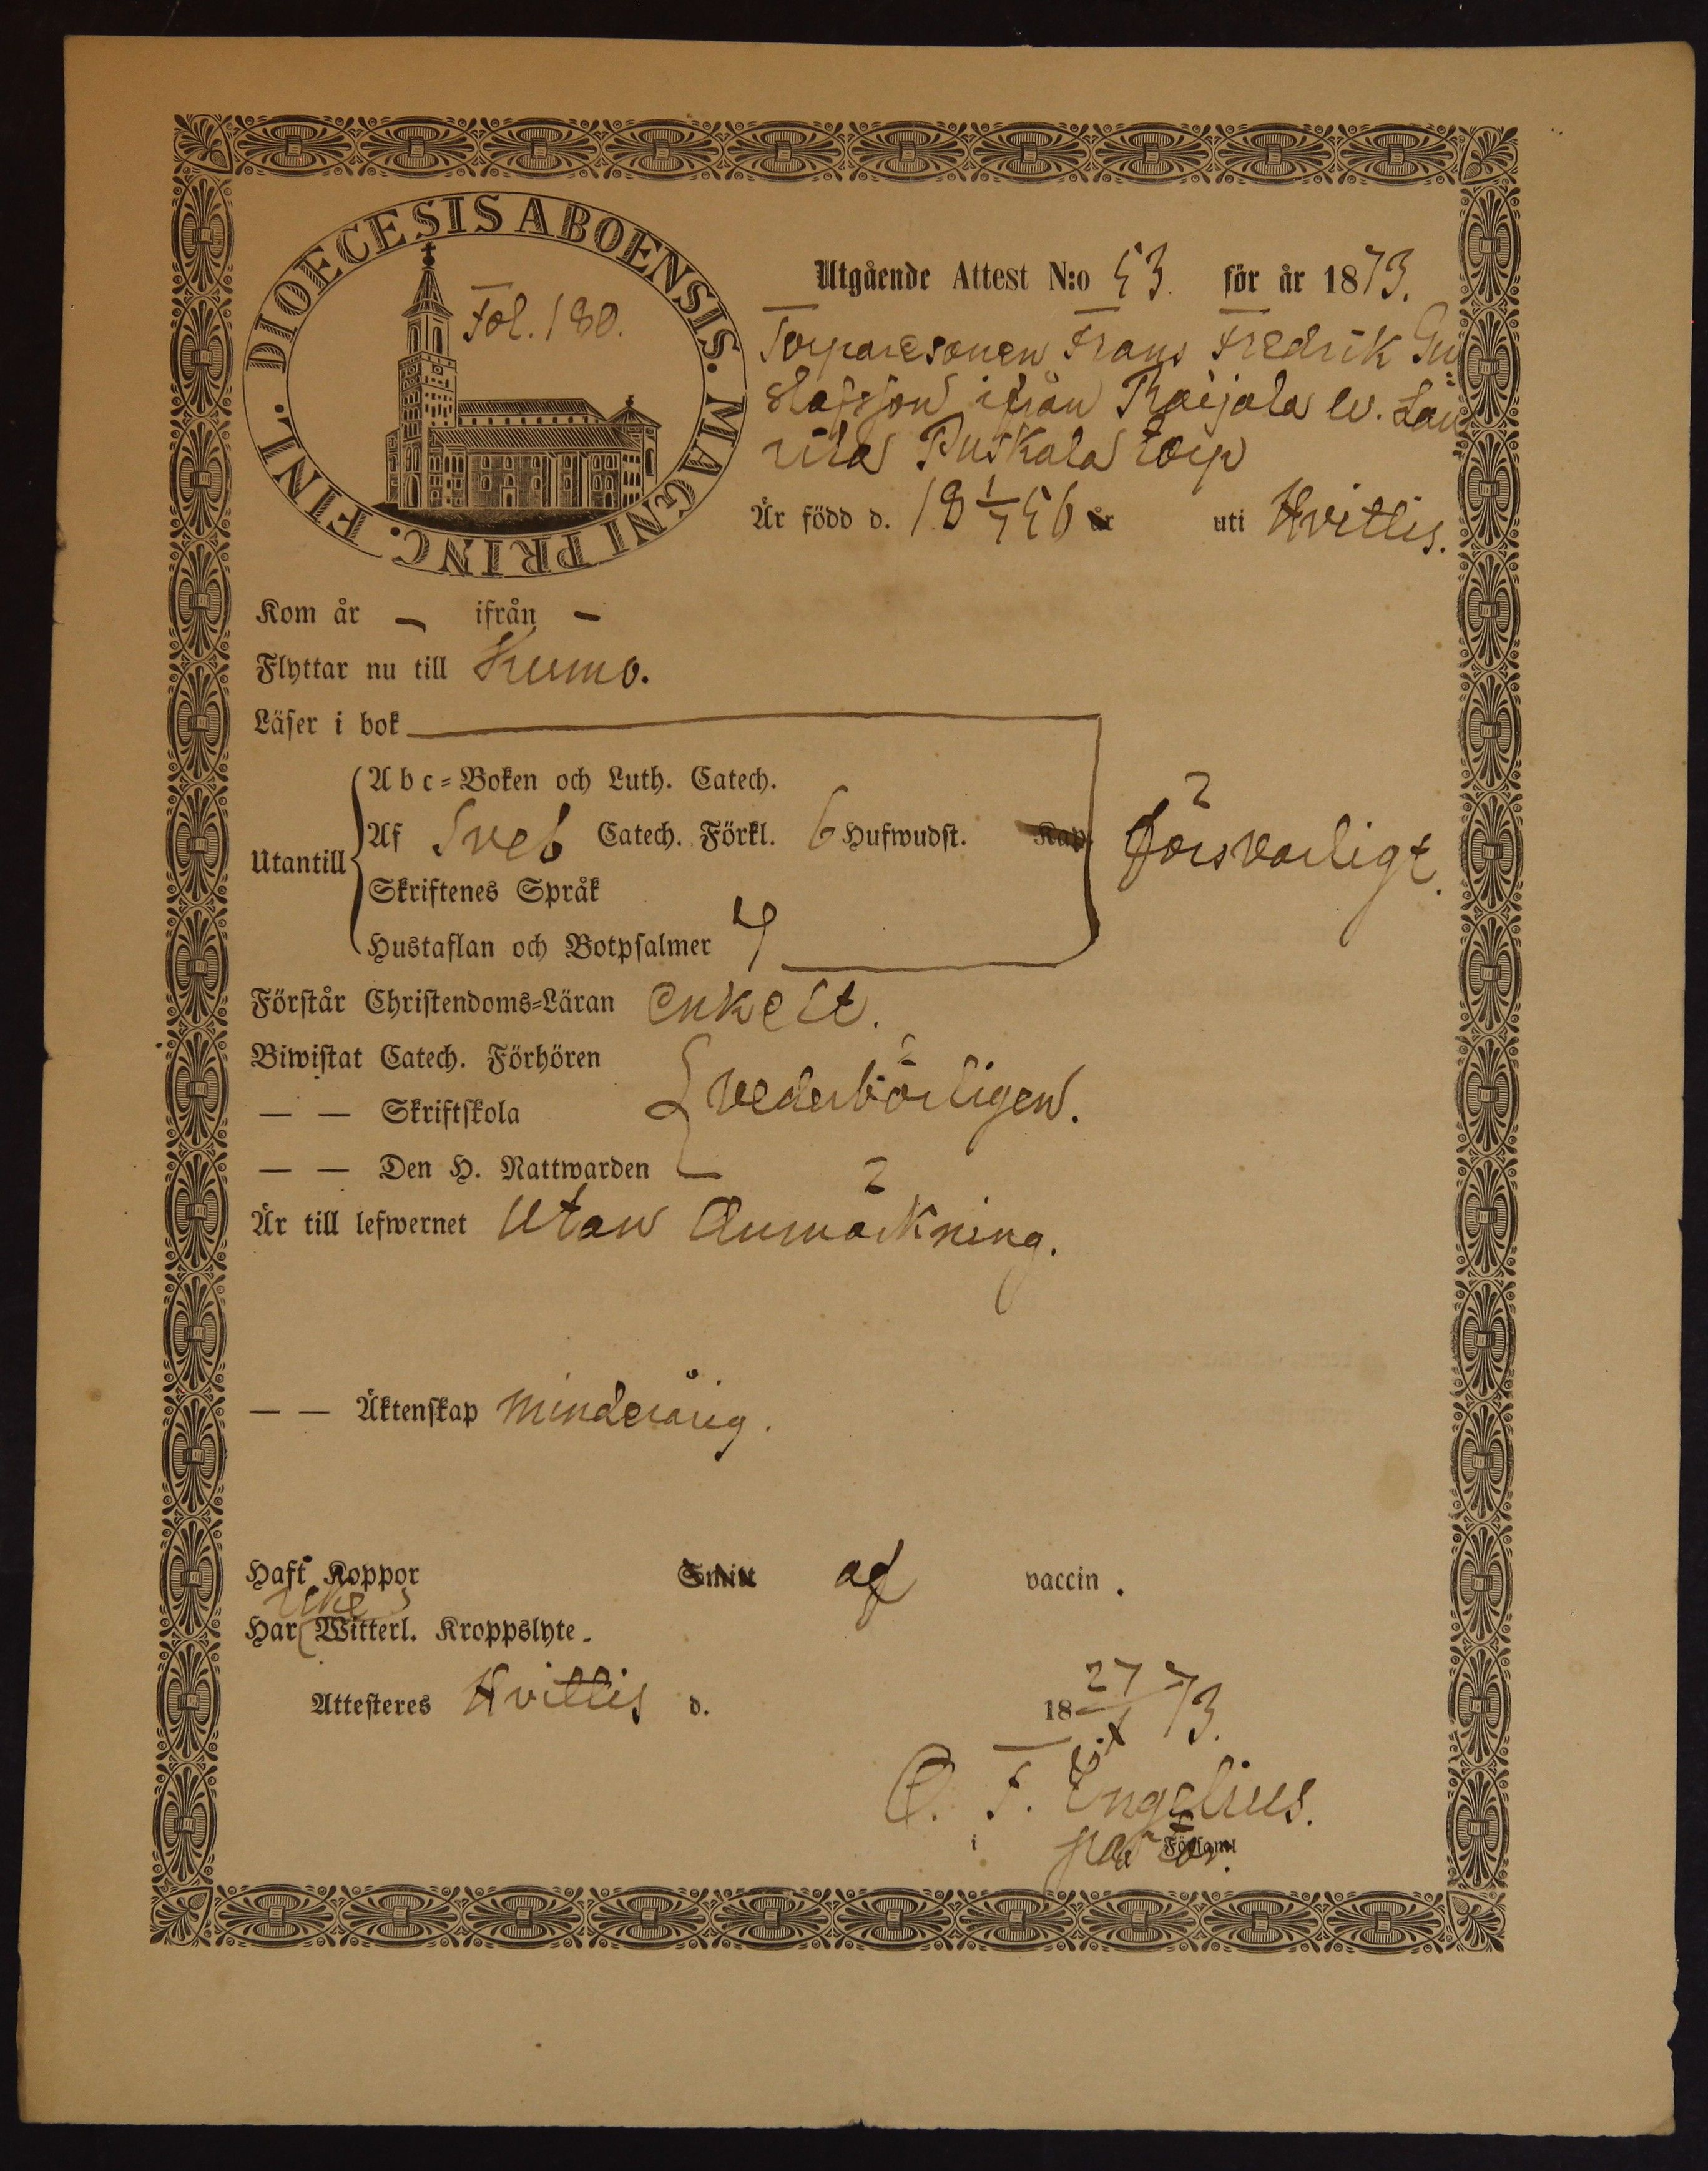 DIOECESIS ABOENSIS. MAGNI PRINC. FINL.
Fol. 180.
Utgående Attest N:o 53. för år 1873.
Torparesonen Frans Fredrik Gu
stafsson ifrån Raijala lv. Lau
rila Puskala torp
Är född d. 18 1/7 56 år uti Hvittis.
Kom år – ifrån –
Flyttar nu till Kumo.
Läser i bok
Abc-Boken och Luth. Catech.
Utantill Af Sveb Catech. Förkl. 6 Hufwudst. Kap. försvarligt.
Skriftenes Språk
Hustaflan och Botpsalmer 4
Förstår Christendoms-Läran enkelt.
Biwistat Catech. Förhören
— — Skriftskola vederbörligen.
— — Den H. Nattwarden
Är till lefwernet utan Anmärkning.
— — Äktenskap minderårig.
Haft Koppor Smitt af vaccin.
icke
Har Witterl. Kroppslyte.
Attesteres Hvittis d. 18 27/1 73.
F. Engelius.
i Församl
pastor.